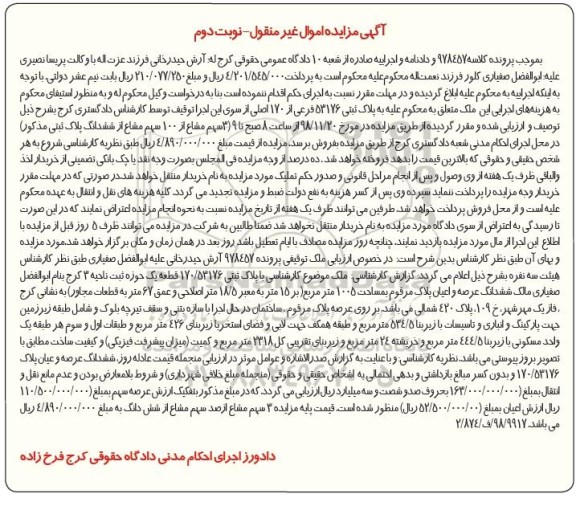 آگهی مزایده اموال غیر منقول-نوبت دوم
بموجب پرونده کلاسه ۹۷۸۴۵۷ و دادنامه و اجراییه صادره از شعبه ۱۰ دادگاه عمومی حقوقی کرج له: آرش حیدرخانی فرزند عزت اله با وکالت پریسا نصیری
علیه: ابوالفضل صفیاری کلور فرزند نعمت‌اله محکوم‌علیه محکوم است به پرداخت ۴/۲۰۱/۵۴۵/۰۰۰ ریال و مبلغ ۲۱۰/۰۷۷/۲۵۰ ریال بابت نیم عشر دولتی. با توجه
به اینکه اجراییه به محکوم علیه ابلاغ گردیده و در مهلت مقرر نسبت به اجرای حکم اقدام ننموده است بنا به درخواست وکیل محکوم له و به منظور استیفای محکوم
به هزینه‌های اجرایی این ملک متعلق به محکوم علیه به پلاک ثبتی ۵۳۱۷۶ فرعی از ۱۷۰ اصلی از سوی این اجرا توقیف توسط کارشناس دادگستری کرج بشرح ذیل
توصیف و ارزیابی شده و مقرر گردیده از طریق مزایده در مورخ ۹۸/۱۱/۲۰ از ساعت ۸ صبح تا ۹ (۳سهم مشاع از ۱۰۰ سهم مشاع از ششدانگ پلاک ثبتی مذکور)
در محل اجرای احکام مدنی شعبه دادگستری کرج از طریق مزایده بفروش برسد. مزایده از قیمت مبلغ ۴/۸۹۰/۰۰۰/۰۰۰ ریال طبق نظریه کارشناسی شروع به هر
شخص حقیقی و حقوقی که بالاترین قیمت را بدهد فروخته خواهد شد. ده درصد از وجه مزایده فی‌المجلس بصورت وجه نقد یا چک بانکی تضمینی از خریدار اخذ
والباقی ظرف یک هفته از وی وصول و پس از انجام مراحل قانونی و صدور حکم تملیک مورد مزایده به نام خریدار منتقل خواهد شد. در صورتی که در مهلت مقرر
خریدار وجه مزایده را پرداخت ننماید سپرده وی پس از کسر هزینه به نفع دولت ضبط و مزایده تجدید می گردد. کلیه هزینه های نقل و انتقال به عهده محکوم
علیه است و از محل فروش پرداخت خواهد شد. طرفین می توانند ظرف یک هفته از تاریخ مزایده نسبت به نحوه انجام مزایده اعتراض نمایند که در این صورت
تا رسیدگی به اعتراض از سوی دادگاه مورد مزایده به نام خریدار منتقل نخواهد شد ضمنا طالبین به شرکت در مزایده می توانند ظرف ۵ روز قبل از مزایده با
اطلاع این اجرا از مال مورد مزایده بازدید نمایند. چنانچه روز مزایده مصادف با ایام تعطیل باشد روز بعد در همان زمان و مکان برگزار خواهد شد.مورد مزایده
و بهای آن طبق نظر کارشناسی بدین شرح است: در خصوص ارزیابی ملک توقیفی پرونده ۹۷۸۴۵۷ آرش حیدرخانی علیه ابوالفضل صفیاری طبق نظر کارشناس
هیئت سه نفره بشرح ذیل اعلام می گردد: گزارش کارشناسی: ملک موضوع کارشناسی با پلاک ثبتی ۱۷۰/۵۳۱۷۶ قطعه یک حوزه ثبت ناحیه ۳ کرج بنام ابوالفضل
صفیاری مالک ششدانگ عرصه و اعیان پلاک مرقوم بمساحت ۱۰۰۵ متر مربع (بر ۱۵ متر به معبر ۱۸/۵ متر اصلاحی و عمق ۶۷ متر به قطعات مجاور) به نشانی کرج
، فاز یک مهرشهر، خ ۱۰۹، پلاک ۴۲۰ شمالی می باشد. بر روی عرصه پلاک مرقوم، ساختمان در حال اجرا با سازه بتنی و سقف تیرچه بلوک و شامل طبقه زیرزمین
جهت پارکینگ و انباری و تاسیسات با زیربنا ۵۳۴/۵ مترمربع و طبقه همکف جهت لابی و فضای استخر با زیربنای ۴۲۶ متر مربع و طبقات اول و سوم هر طبقه یک
واحد مسکونی با زیربنا ۴۴۴/۵ متر مربع و خرپشته ۲۴ متر مربع و زیربنای تقریبی کل ۲۳۱۸ متر مربع و کمیت (میزان پیشرفت فیزیکی) و کیفیت ساخت مطابق با
تصویر بروز پیوستی می باشد. نظریه کارشناسی: و با عنایت به گزارش صدرالاشاره و عوامل موثر در ارزیابی منجمله قیمت عادله روز، ششدانگ عرصه و عیان پلاک
۱۷۰/۵۳۱۷۶ و بدون کسر مبالغ بازداشتی و بدهی احتمالی به اشخاص حقیقی و حقوقی (منجمله مبلغ خلافی شهرداری) و شروط بلامعارض بودن و عدم مانع نقل و
انتقال بمبلغ (۱۶۳/۰۰۰/۰۰۰/۰۰۰) بحروف صدو شصت و سه میلیارد ریال ارزیابی می گردد. که در مبلغ مذکور بتفکیک ارزش عرصه سهم بمبلغ (۱۱۰/۵۰۰/۰۰۰/۰۰۰
ریال ارزش اعیان بمبلغ (۵۲/۵۰۰/۰۰۰/۰۰ ریال) منظور شده است. قیمت پایه مزایده ۳ سهم مشاع ازصد سهم مشاع از شش دانگ به مبلغ ۴/۸۹۰/۰۰۰/۰۰۰ ریال
می باشد. ۹۸/۹۹۱۷/ف ۲/۸۷۴/
دادورز اجرای احکام مدنی دادگاه حقوقی کرج فرخ زاده